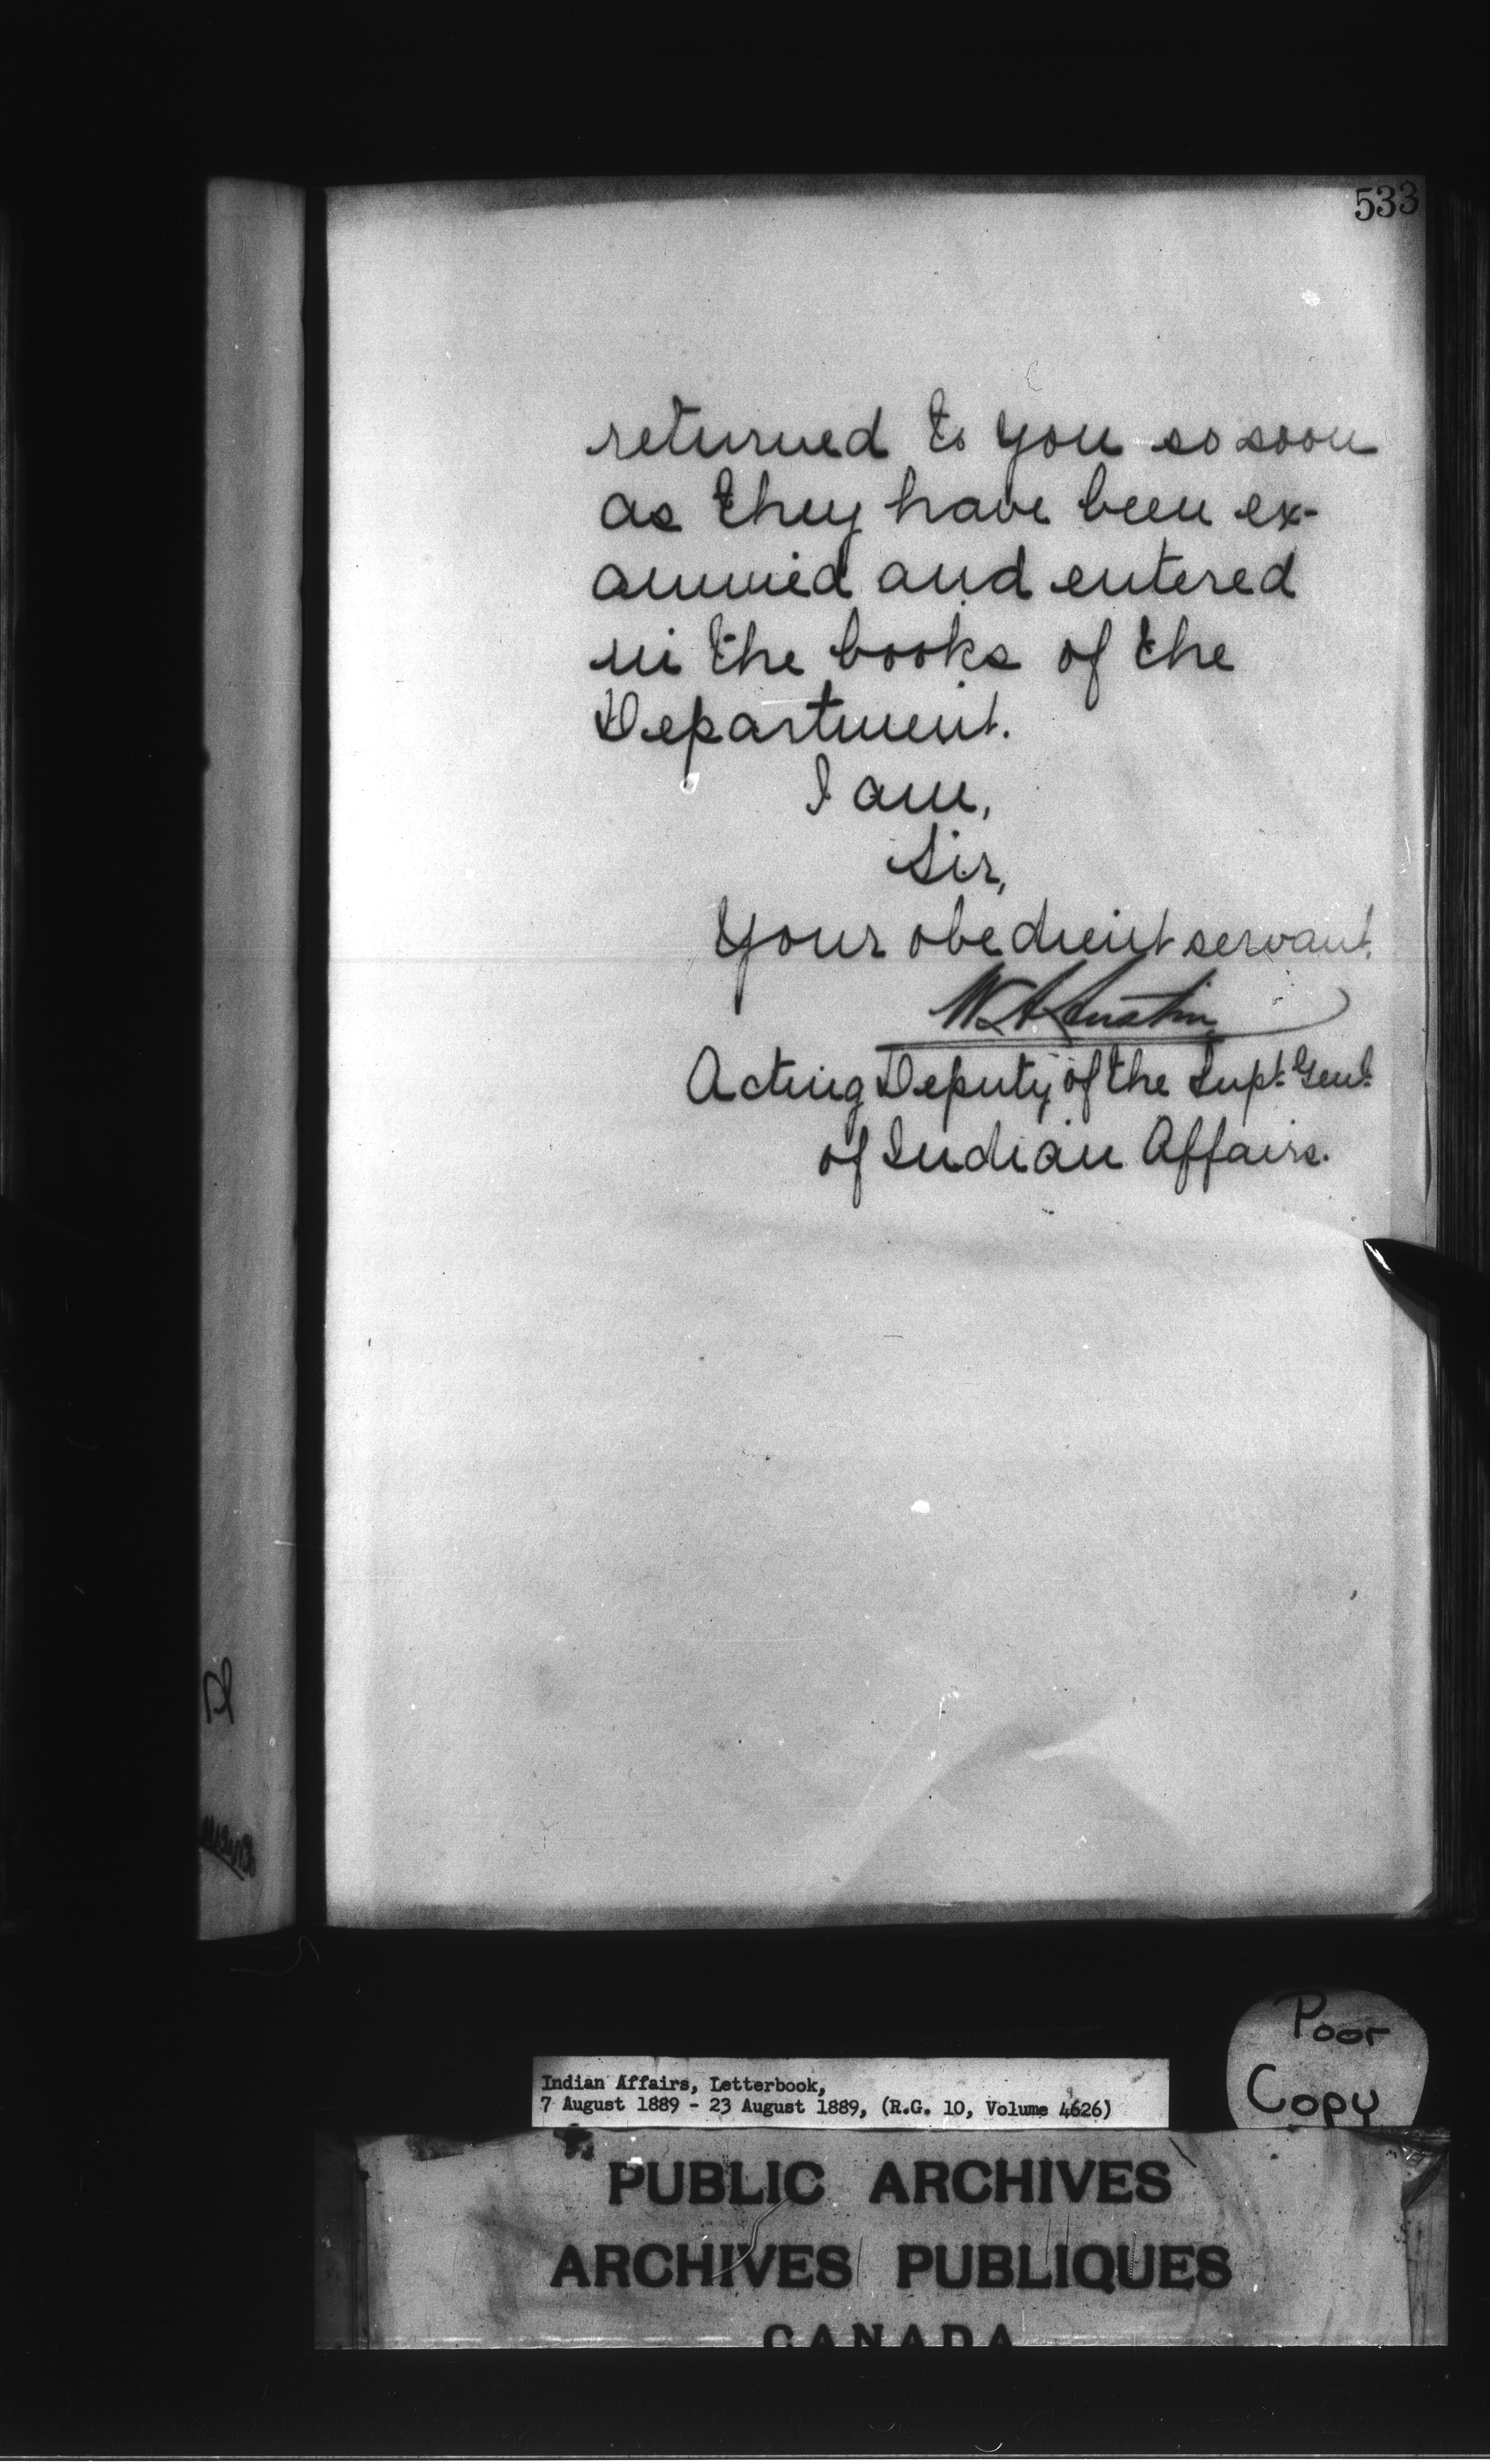 533
returned to you so soon
as they have been ex-
amined and entered
in the books of the
Department.
I am,
Sir,
Your obedient servant.
W A Austin
Acting Deputy of the Supt. Genl.
of Indian Affairs.
Poor
Copy
Indian Affairs, Letterbook,
7 August 1889 - 23 August 1889, (R.G. 10, Volume 4626)
PUBLIC ARCHIVES
ARCHIVES PUBLIQUES
CANADA